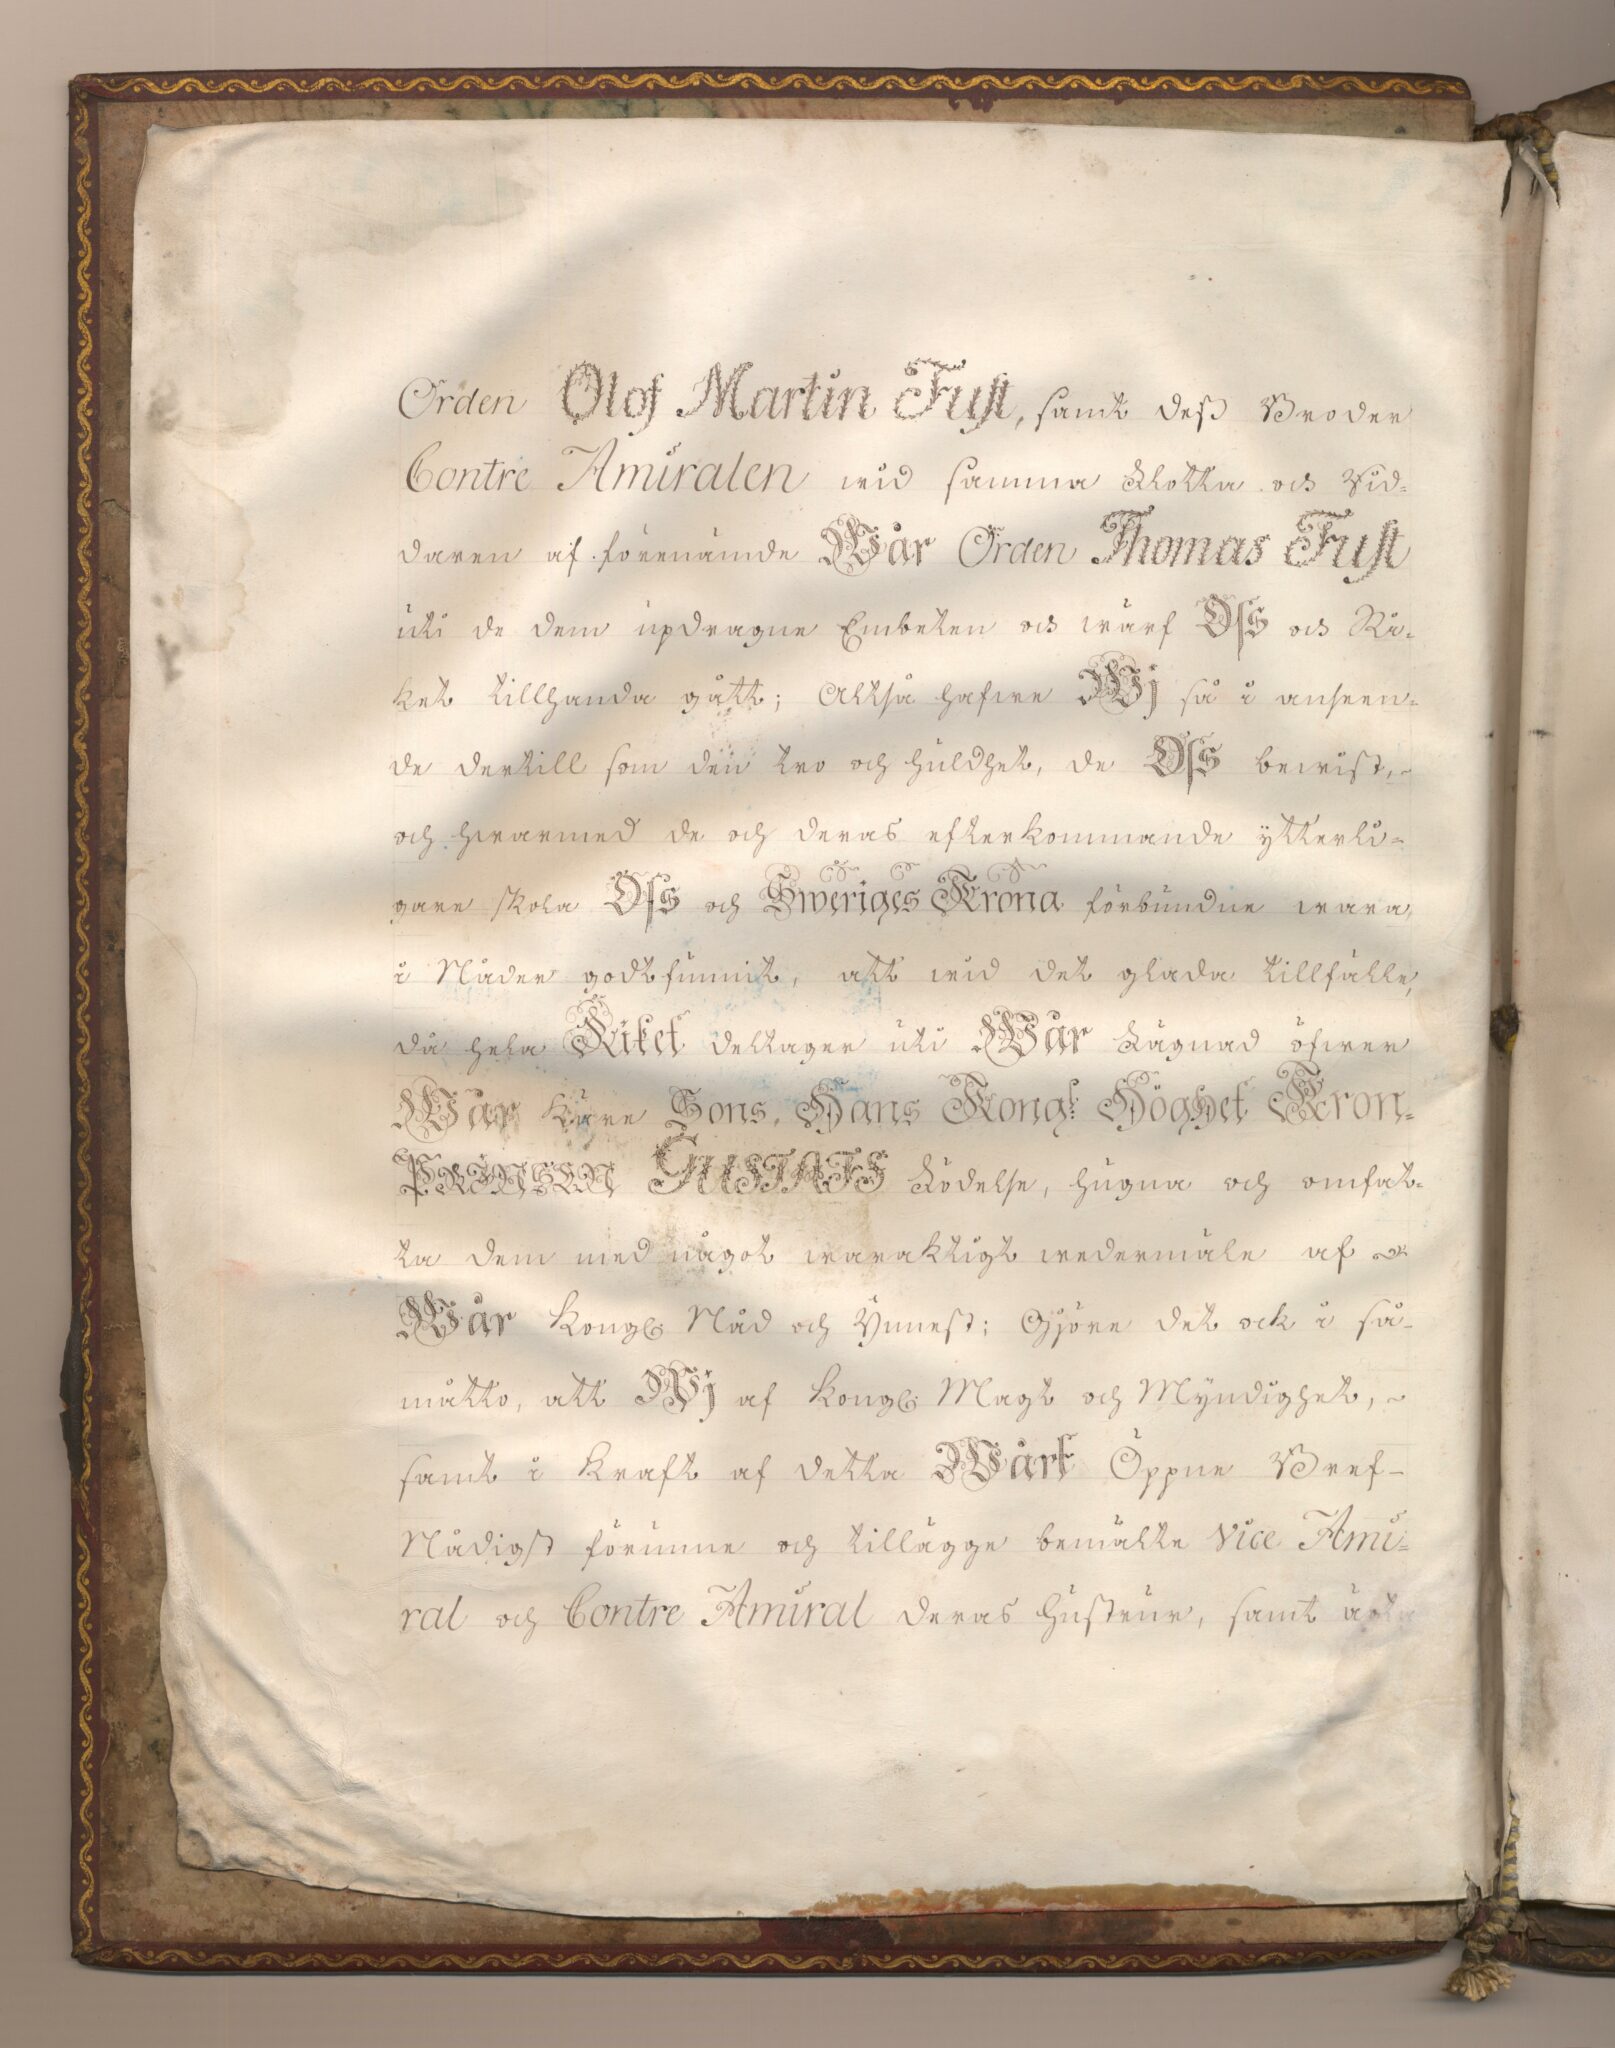 Orden Olof Martin Fust, samt dess Broder
Contre Amiralen wid samma Flotta och Rid-
daren af förenämde Wår Orden Thomas Fust
uti de dem updragne Embeten och wärf Oss och Ri-
ket tillhanda gått; Altså hafwe Wj så i anseen-
de dertill som den tro och huldhet, de Oss bewist,
och hwarmed de och deras efterkommande ytterli-
gare skola Oss och Sweriges Krona förbundne wara,
i Nåder godtfunnit, att wid det glada tillfälle,
då hela Riket deltager uti Wår Fägnad öfwer
Wår käre Sons, Hans Kongl. Höghet Kron-
Prinsen GUSTAFS Födelse, hugna och omfat-
ta dem med något waraktigt wedermäle af
Wår Kongl. Nåd och Ynnest; Gjöre det ock i så-
måtto, att Wj af Kongl. Magt och Myndighet,
samt i Kraft af detta Wårt Öppne Bref-
Nådigst förunne och tillägge bemälte Vice Ami-
ral och Contre Amiral deras Hustrur, samt ägta